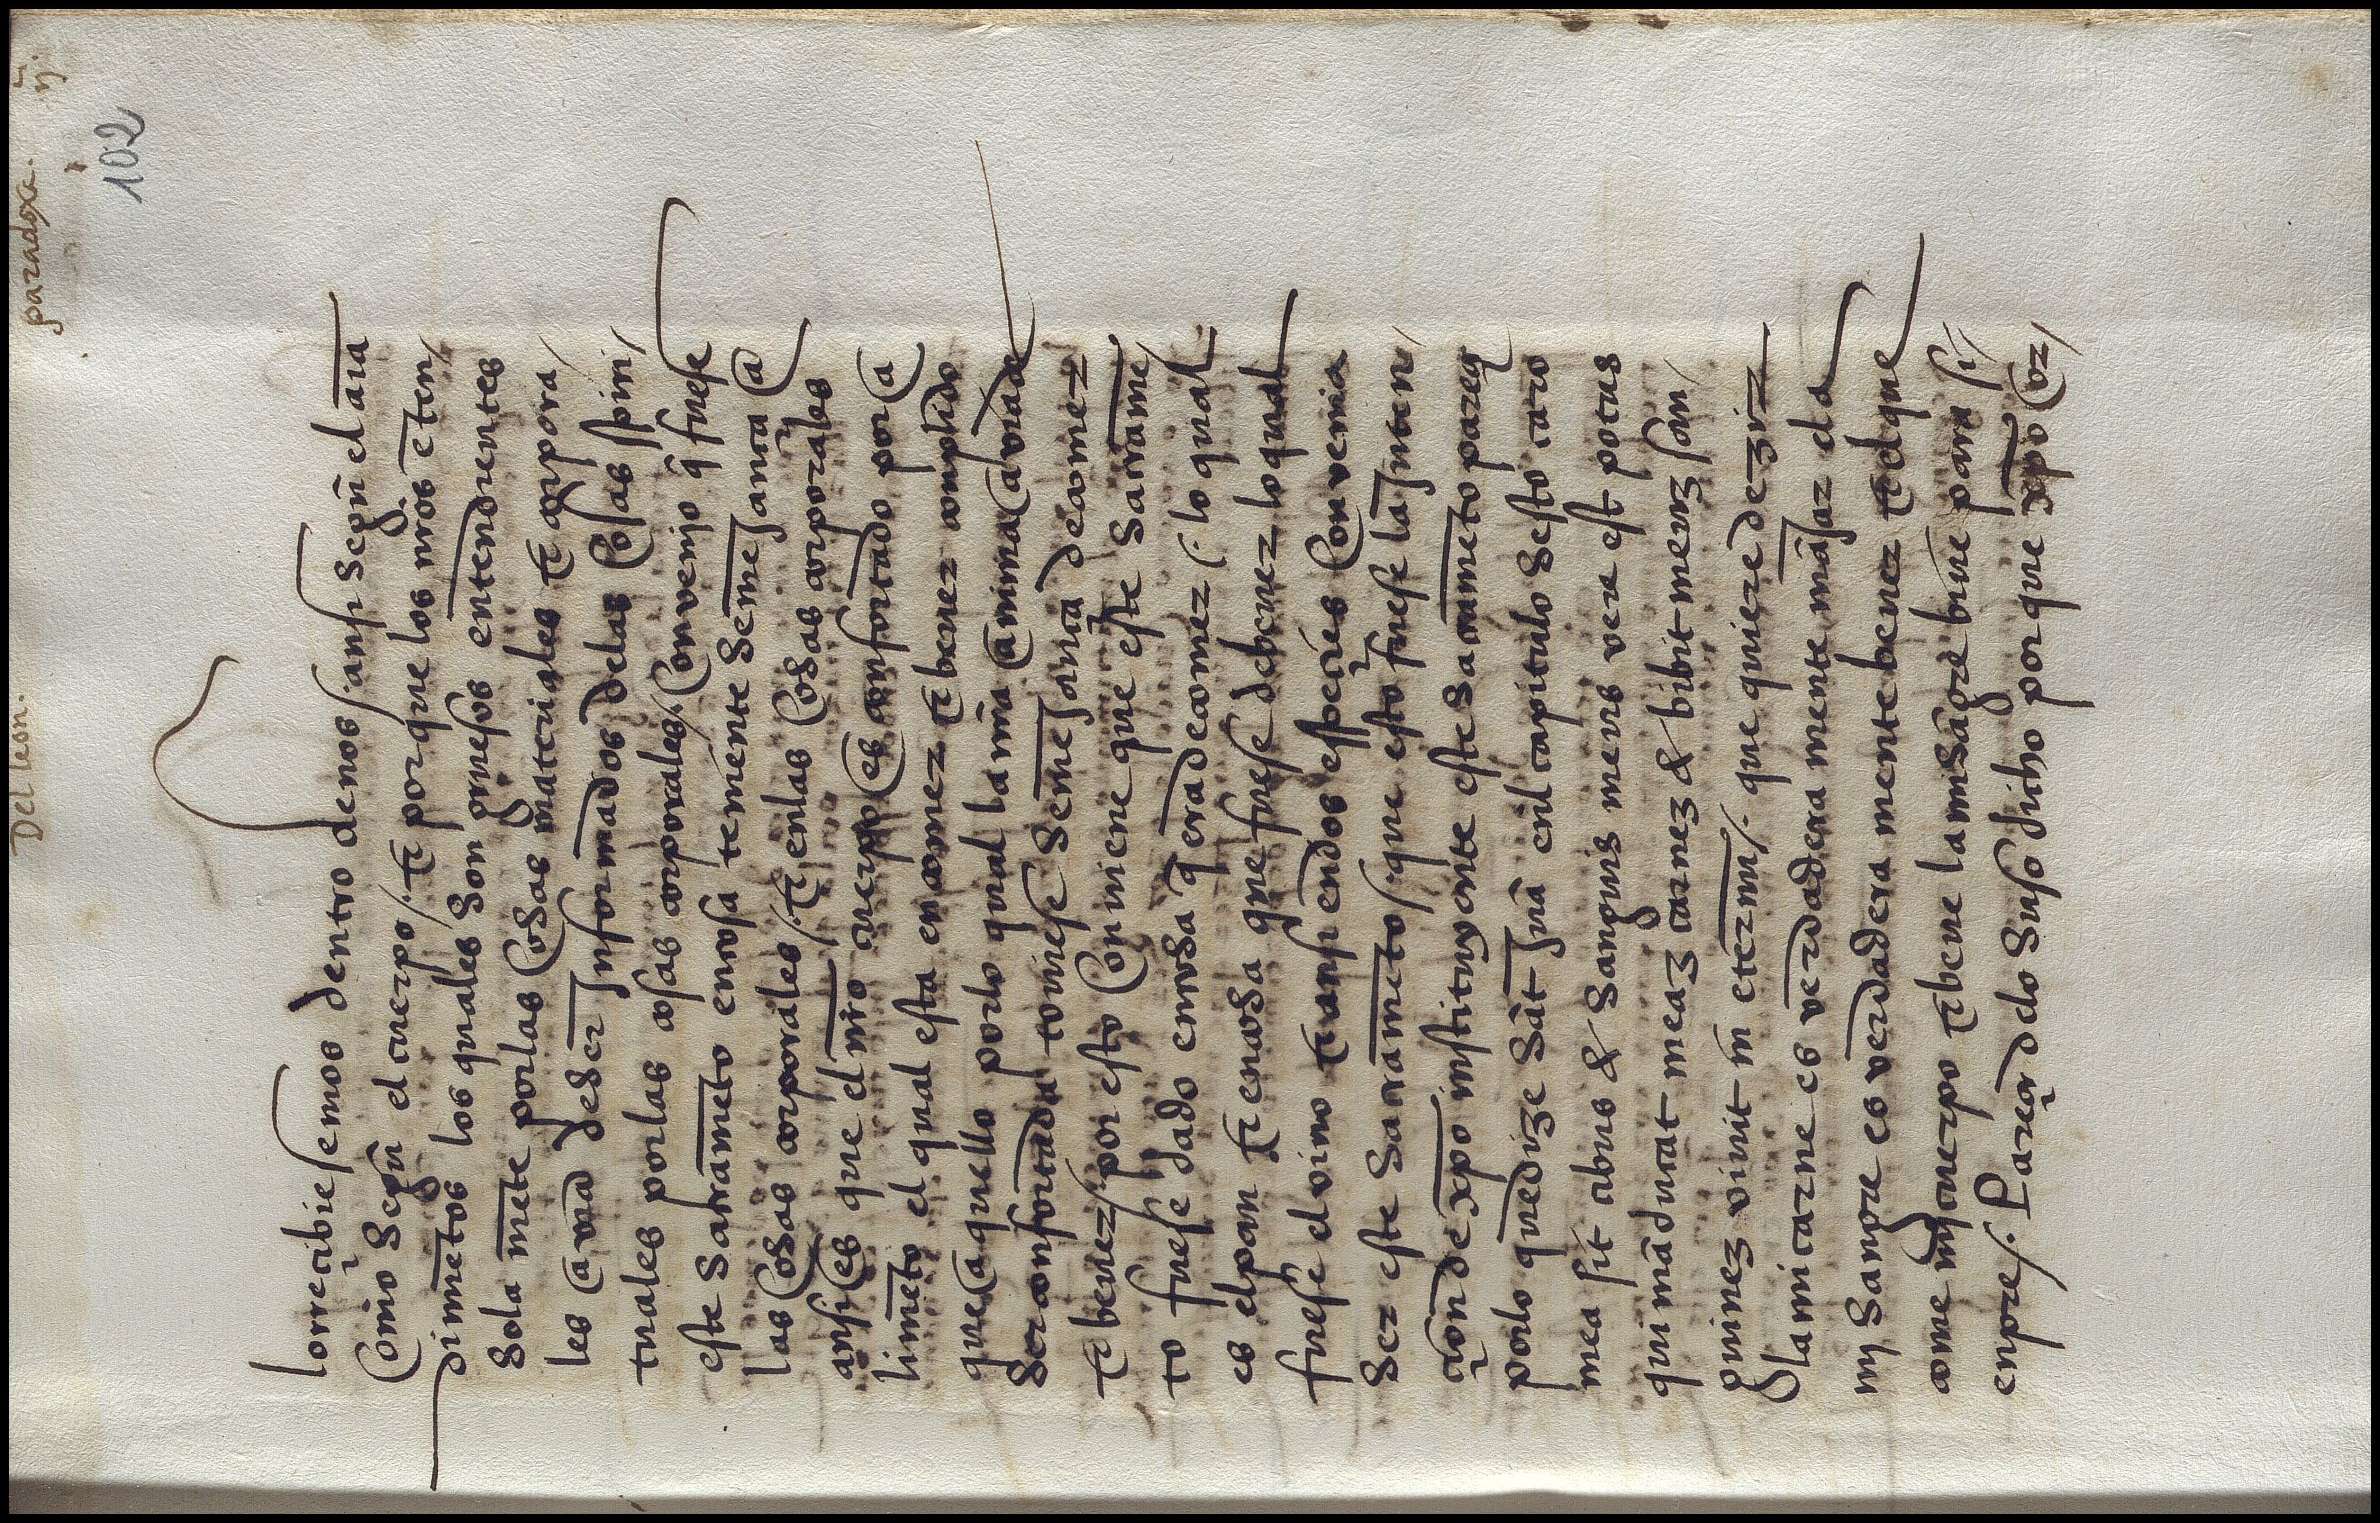 Del leon. paradoxa. vj.
102
lo rrecibiesemos dentro de nos / ansi segũ el aĩa
como segũ el cuerpo /. τ por que los nr̃os ẽten /
dimiẽtos los quales son gruesos entendientes
sola mẽte por las cosas materiales τ corpora /
les a vña de ser jnformados de las cosas spiri /
tuales por las cosas corporales /. convenjo q̃ fuese
este sacramẽto en cosa temente semejança a
las cosas corporales /. τ en las cosas corporales
ansi es que el nr̃o cuerpo es confortado por a
limẽto el qual esta en comer τ bever complido
que aquello por lo qual la anima a vña de
ser confortada toviese semejança de comer
τ bever /. por esto conviene que este sacrame /
to fuese dado en cosa q̃ era de comer /. lo qual
es el pan τ en cosa que fuese de bever lo qual
fuese el vino τ ansi en dos espeçies convenia
ser este sacramẽto /. que esto fuese la jnten /
çion de xp̃o instituyente este sacramẽto pareçe
por lo que dize sãt juã en l capitulo sesto caro
mea sit cibus & sanguis meus vere est potus
qui mãducat meaz carnez & bibit meuz san /
guinez vivit in eternuz /. que quiere dezir
la mi carne es verdadera mente mãjar e la
mj sangre es verdadera mente bever τ el que
come mj cuerpo τ beve la mi sãgre bive para si /
enpre /. Pareçe de lo suso dicho por que xp̃o or /